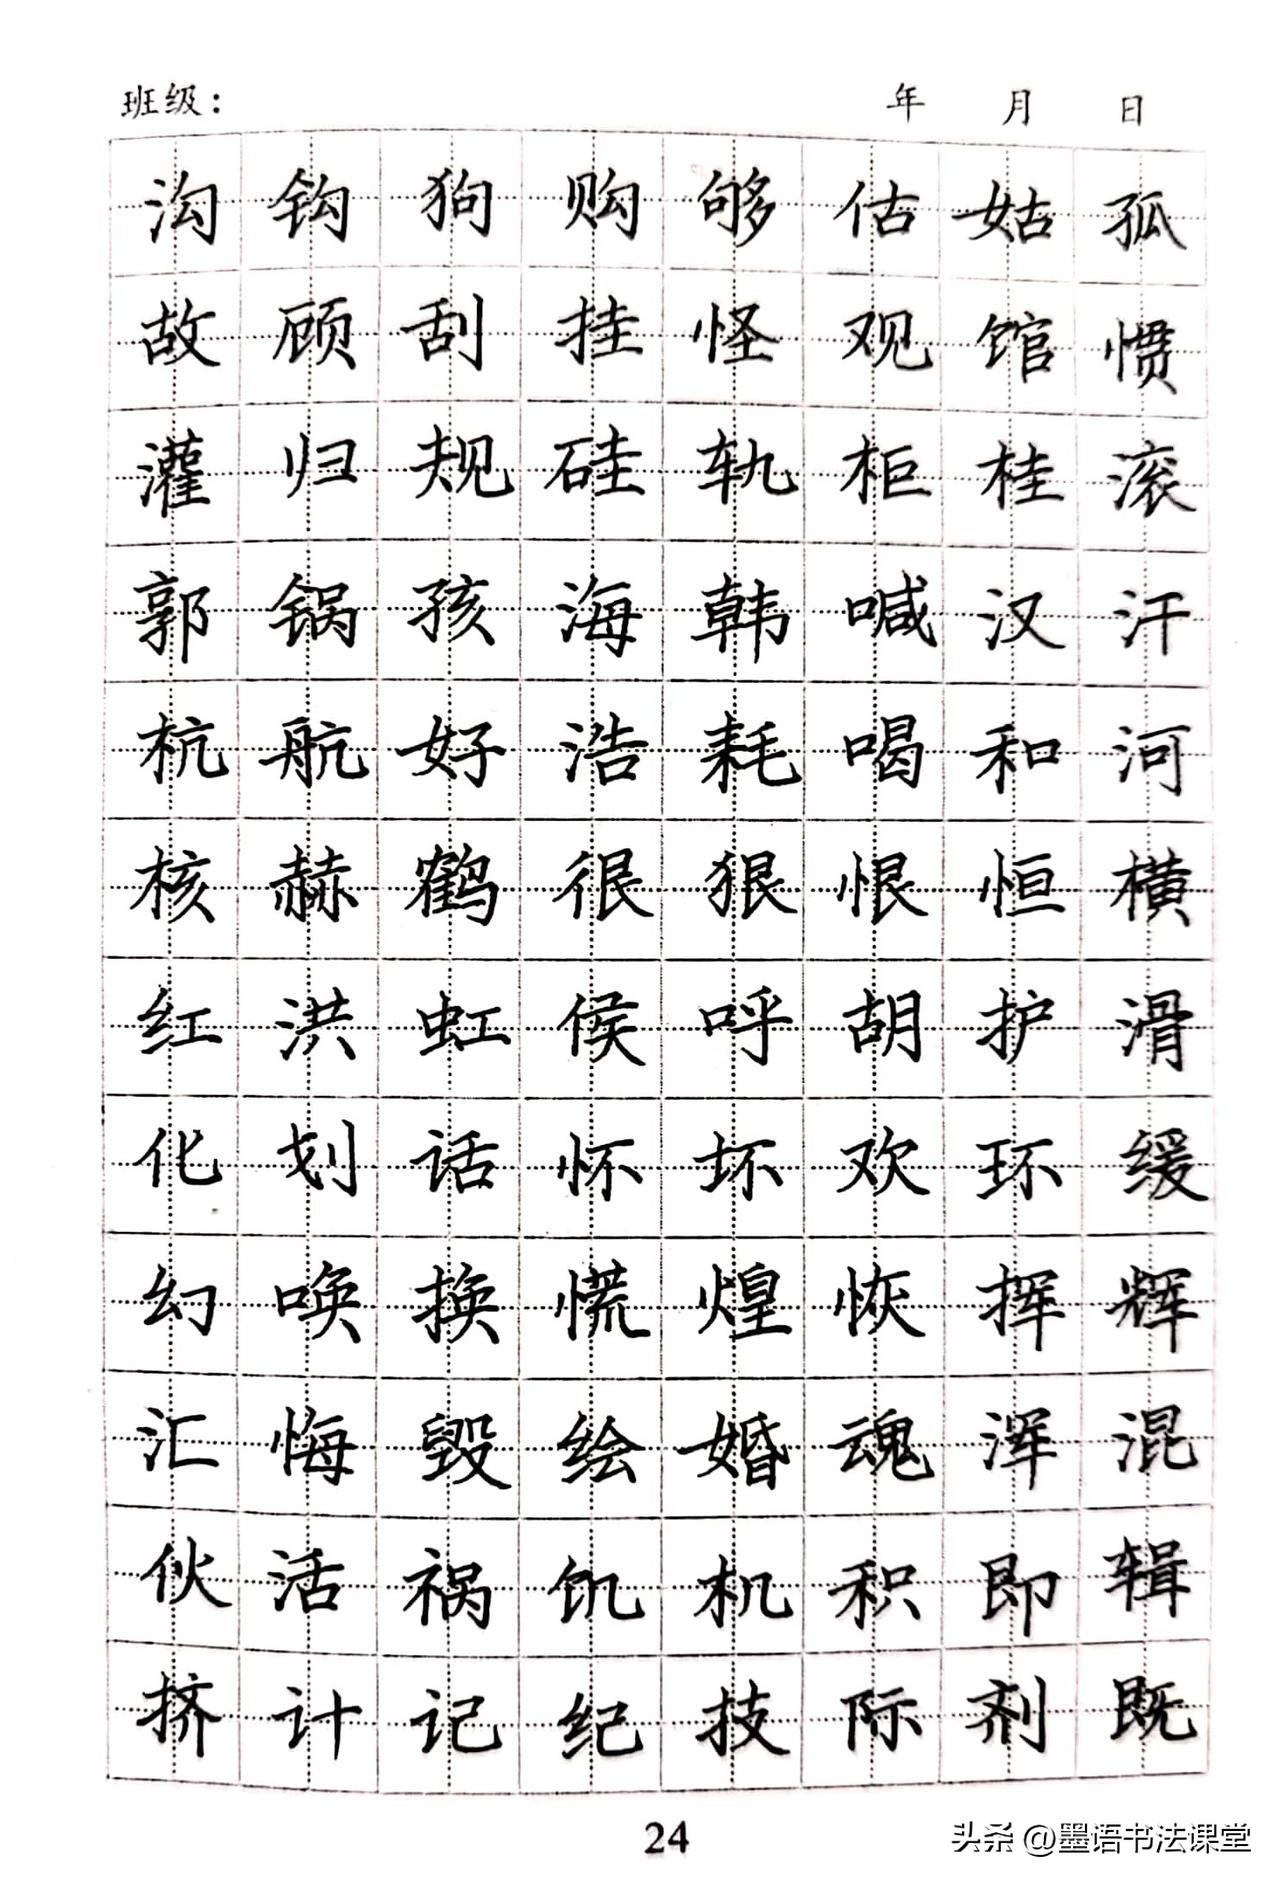 班级： 年 月 日
沟 钩 狗 购 够 估 姑 孤
故 顾 刮 挂 怪 观 馆 惯
灌 归 规 硅 轨 柜 桂 滚
郭 锅 孩 海 韩 喊 汉 汗
杭 航 好 浩 耗 喝 和 河
核 赫 鹤 很 狠 恨 恒 横
红 洪 虹 候 呼 胡 护 滑
化 划 话 怀 坏 欢 环 缓
幻 唤 换 慌 煌 恢 挥 辉
汇 悔 毁 绘 婚 魂 浑 混
伙 活 祸 饥 机 积 即 辑
挤 计 记 纪 技 际 剂 既
24
头条 @墨语书法课堂